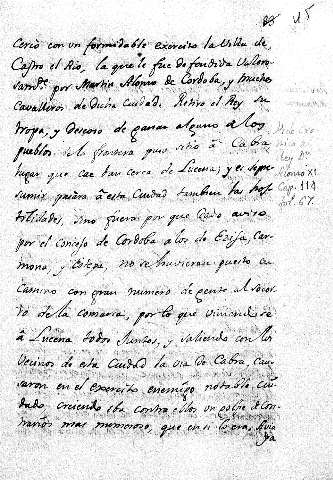 85 45
cercò con un formidable exercito la Villa de
Castro el Rio, la que le fue defendida valero
samte por Martin Alonso de Cordoba, y muchos
cavalleros de dicha Ciudad. Retirò el Rey su
tropa, y deseoso de ganar alguno de los
pueblos de la frontera puso sitio à Cabra
lugar que cae tan cerca de Lucena; y es de pre
sumir pasàra à esta Ciudad tambien las hos
tilidades, sino fuera por que dado aviso
por el concejo de Cordoba à los de Ezija, Car
mona, y Estepa, no se huvieran puesto en
camino con gran numero de gente al socor
ro de la comarca, por lo que viniendose
à Lucena todos juntos, y saliendo con los
Vecinos de esta Ciudad la via de Cabra, cau
saron en el exercito enemigo notable cui
dado creciendo iba contra ellos un golpe de con
trarios mas numeroso, que en si lo era,
Rey Dn
Alonso XI
Cap. 114
fol. 67.